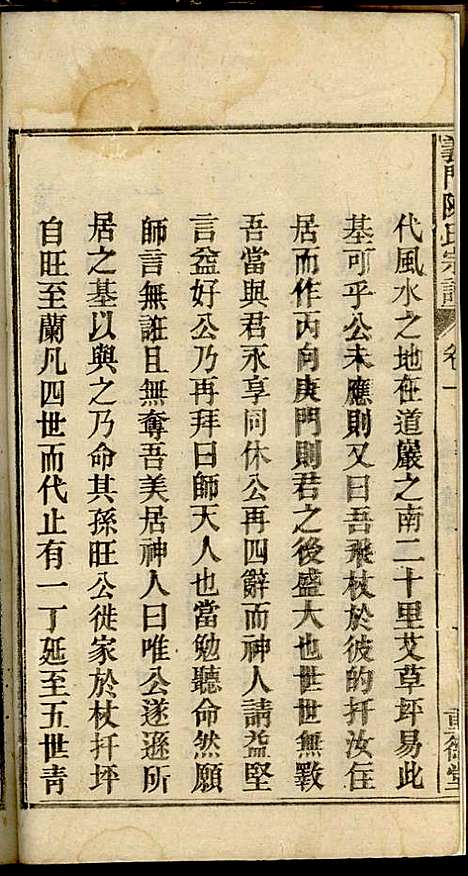 義門陳氏宗譜
卷一
代風水之地在道巖之南二十里艾草坪易此
基可乎公未應則又曰吾飛杖於彼的扦汝住
居而作丙向庚門則君之後盛大也世世無斁
吾當與君永享同休公再四辭而神人請益堅
言益好公乃再拜曰師天人也當勉聽命然願
師言無誑且無奪吾美居神人曰唯公遂遜所
居之基以與之乃命其孫旺公徙家於杖扦坪
自旺至蘭凡四世而代止有一丁延至五世青